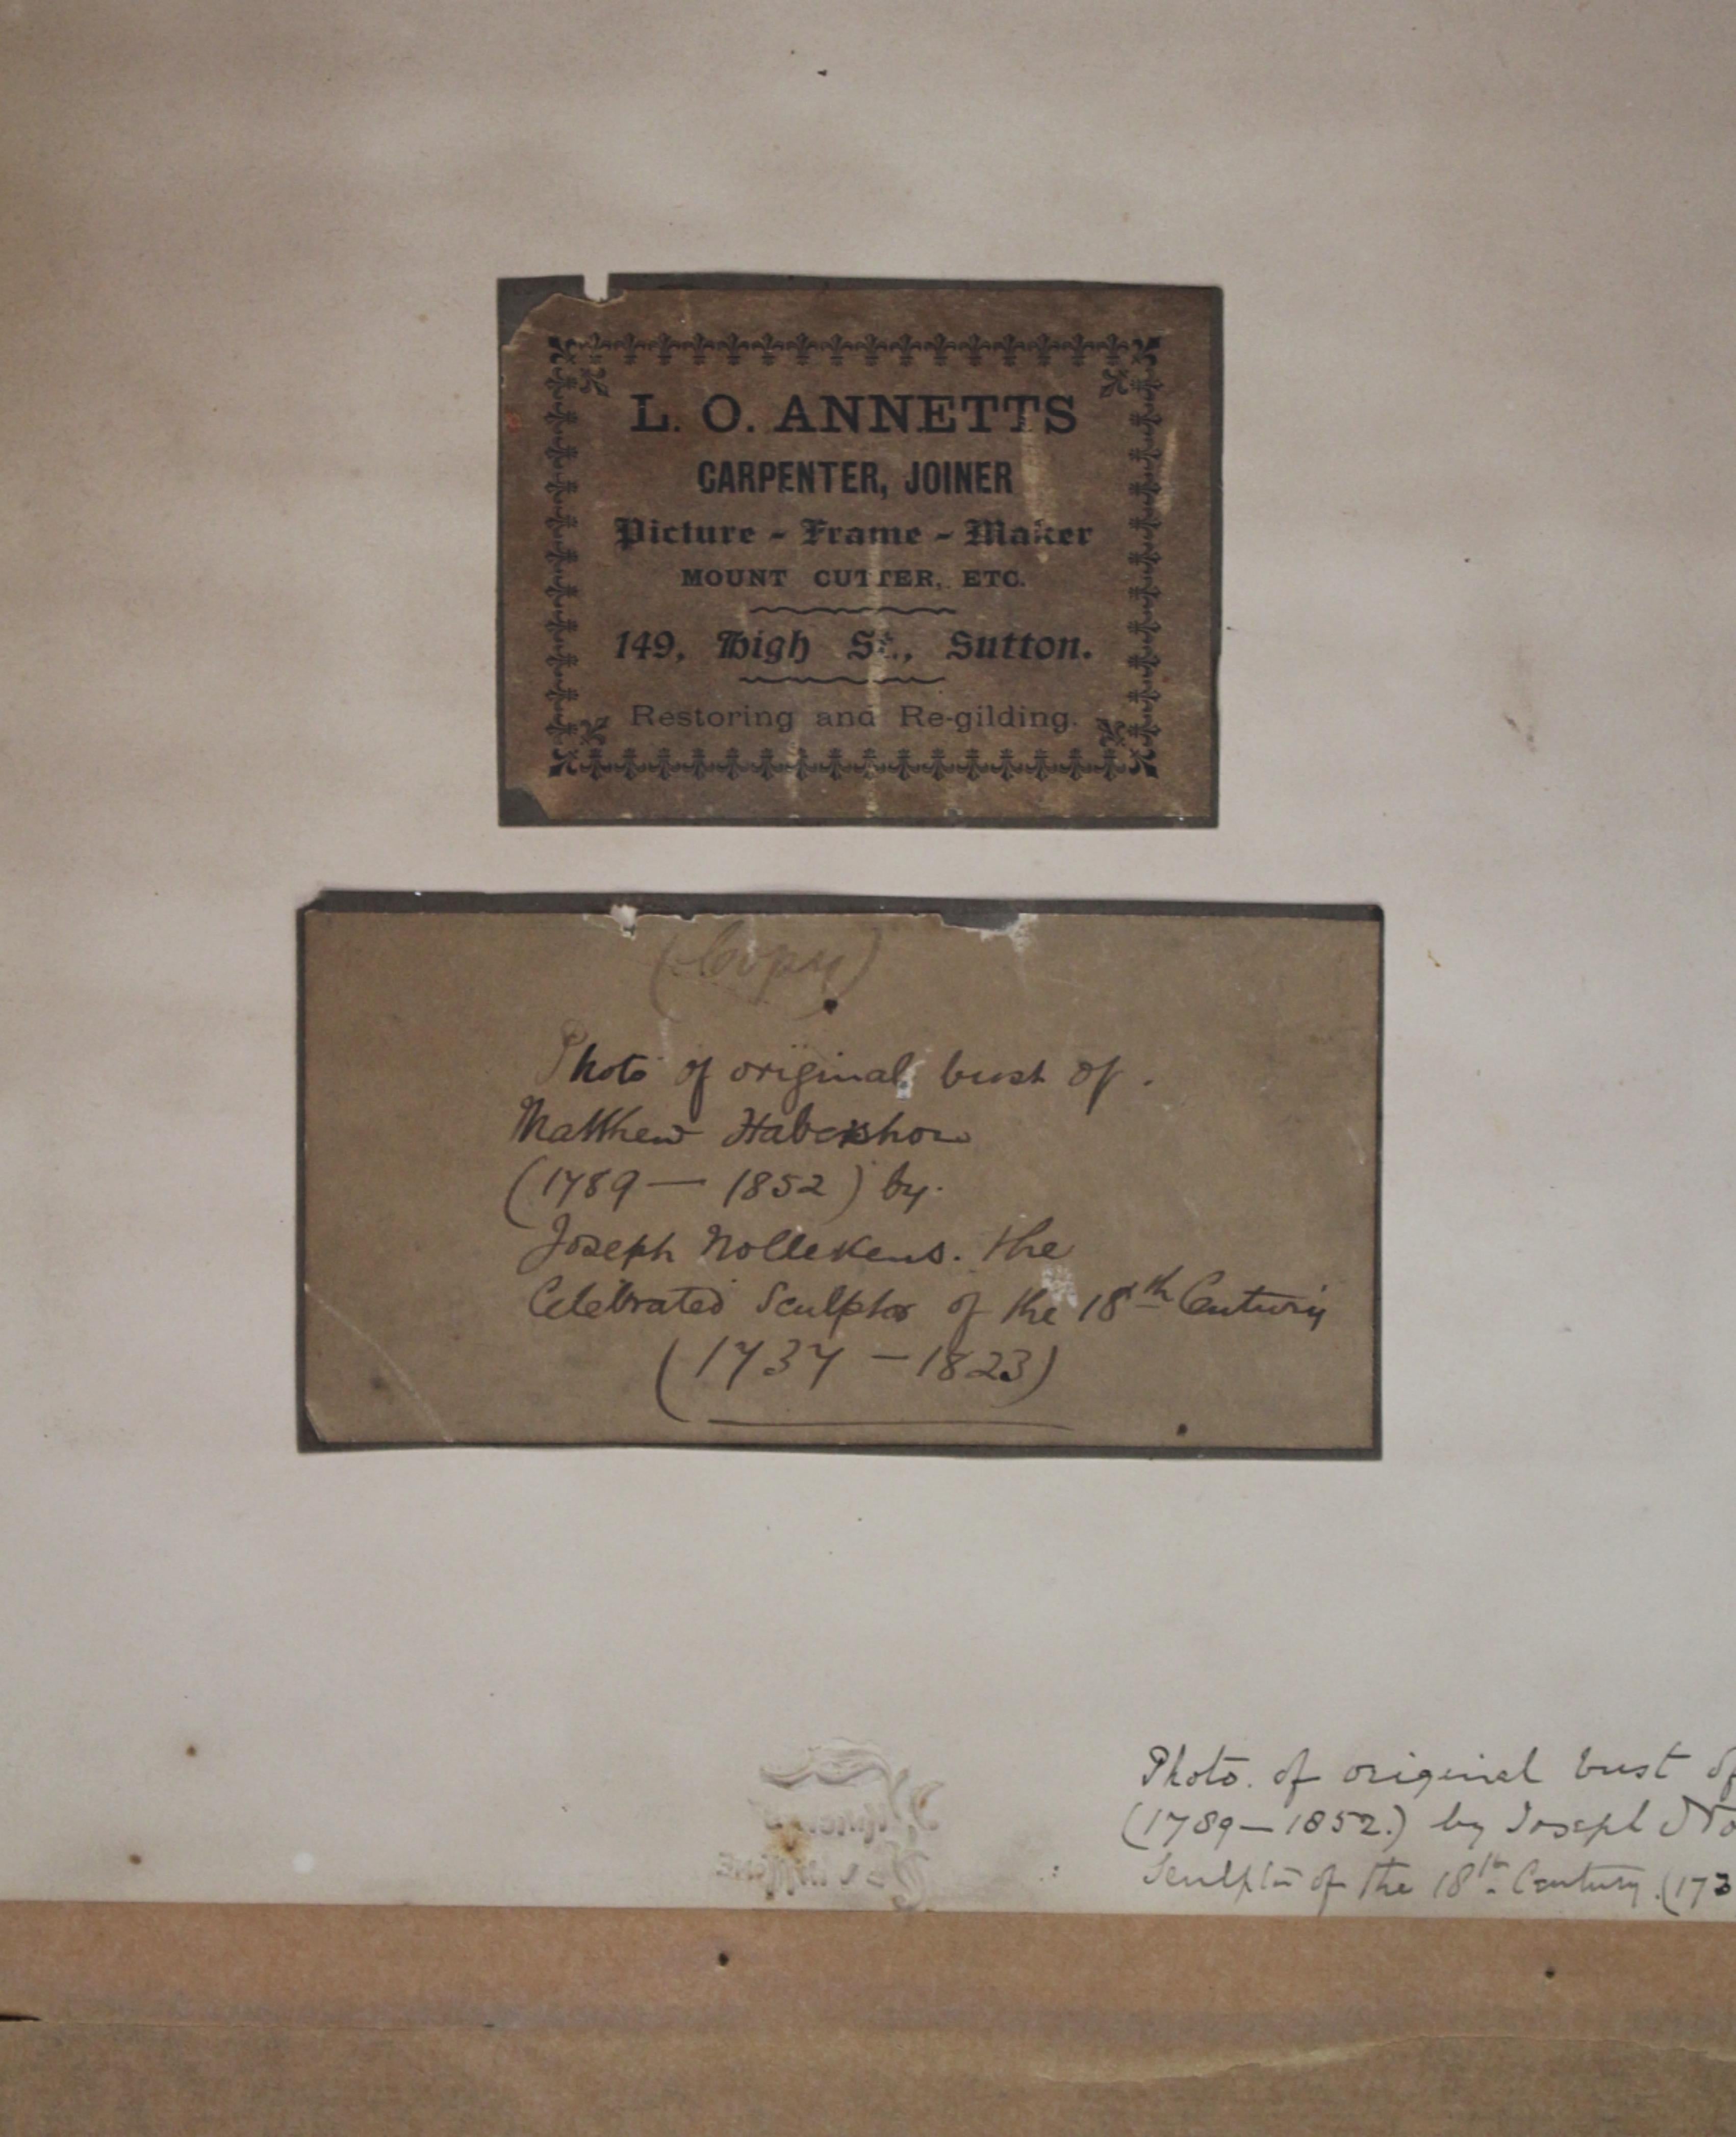 L. O. ANNETTS
CARPENTER, JOINER
Picture - Frame - Maker
MOUNT CUTTER, ETC.
149, High St., Sutton.
Restoring and Re-gilding.
(Copy)
Photo of original bust of.
Matthew Habershon
(1789 — 1852) by.
Joseph Nollekens. the
Celebrated Sculptor of the 18th Century
(1737 — 1823)
Photo. of original bust of
(1789 — 1852.) by Joseph No
Sculptor of the 18th Century. (173